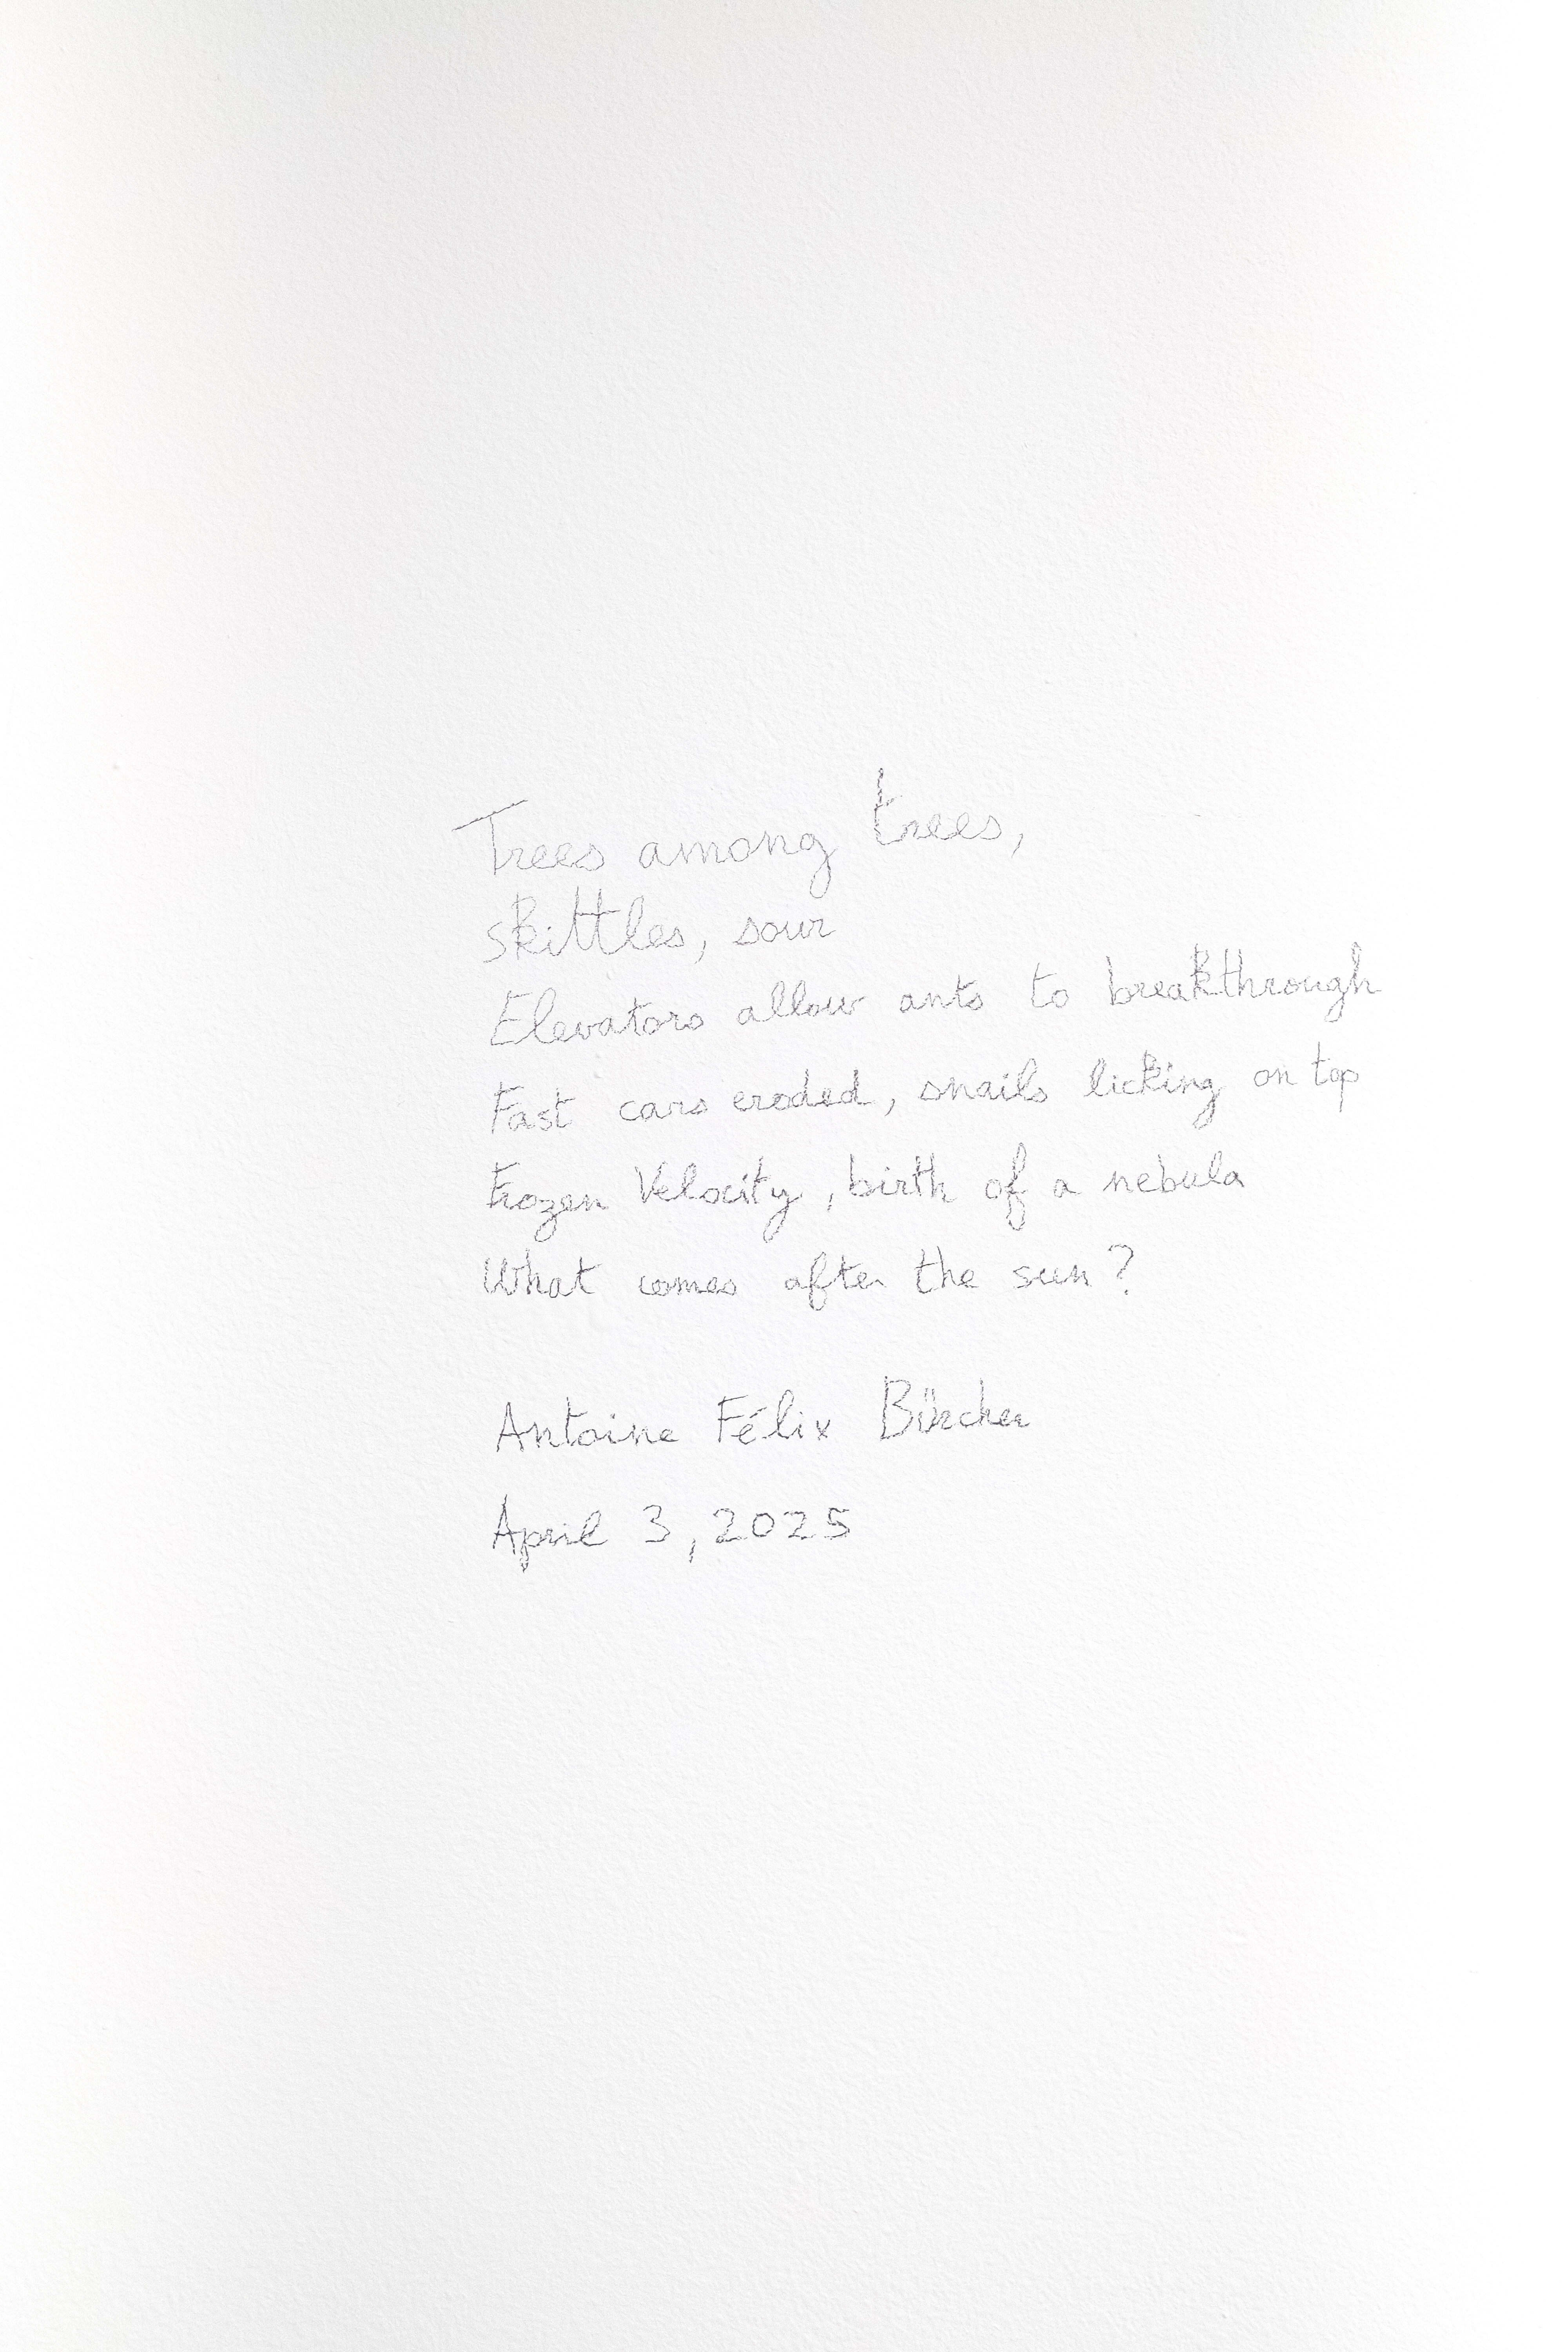 Trees among trees,
skittles, sour
Elevators allow ants to breakthrough
Fast cars eroded, snails licking on top
Frozen Velocity, birth of a nebula
What comes after the sun?
Antoine Félix Bürcher
April 3, 2025